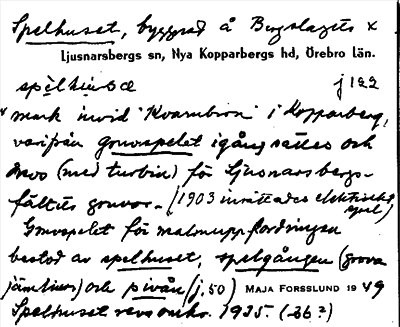 Spelhuset, byggnad å Bergslagets x
Ljusnarsbergs sn, Nya Kopparbergs hd, Örebro län.
j 122
x mark invid "Kvarnbron" i Kopparberg,
varifrån gruvspelet igång sattes och
drevs (med turbin) för Ljusnarsbergs-
fältets gruvor. (1903 inrättades elektriskt spel)
Gruvspelet för malmuppfordringen
bestod av spelhuset, spelgången (grova
järnlinor) och pivån (j. 50) MAJA FORSSLUND 1949
Spelhuset revs omkr. 1925. (-26?)